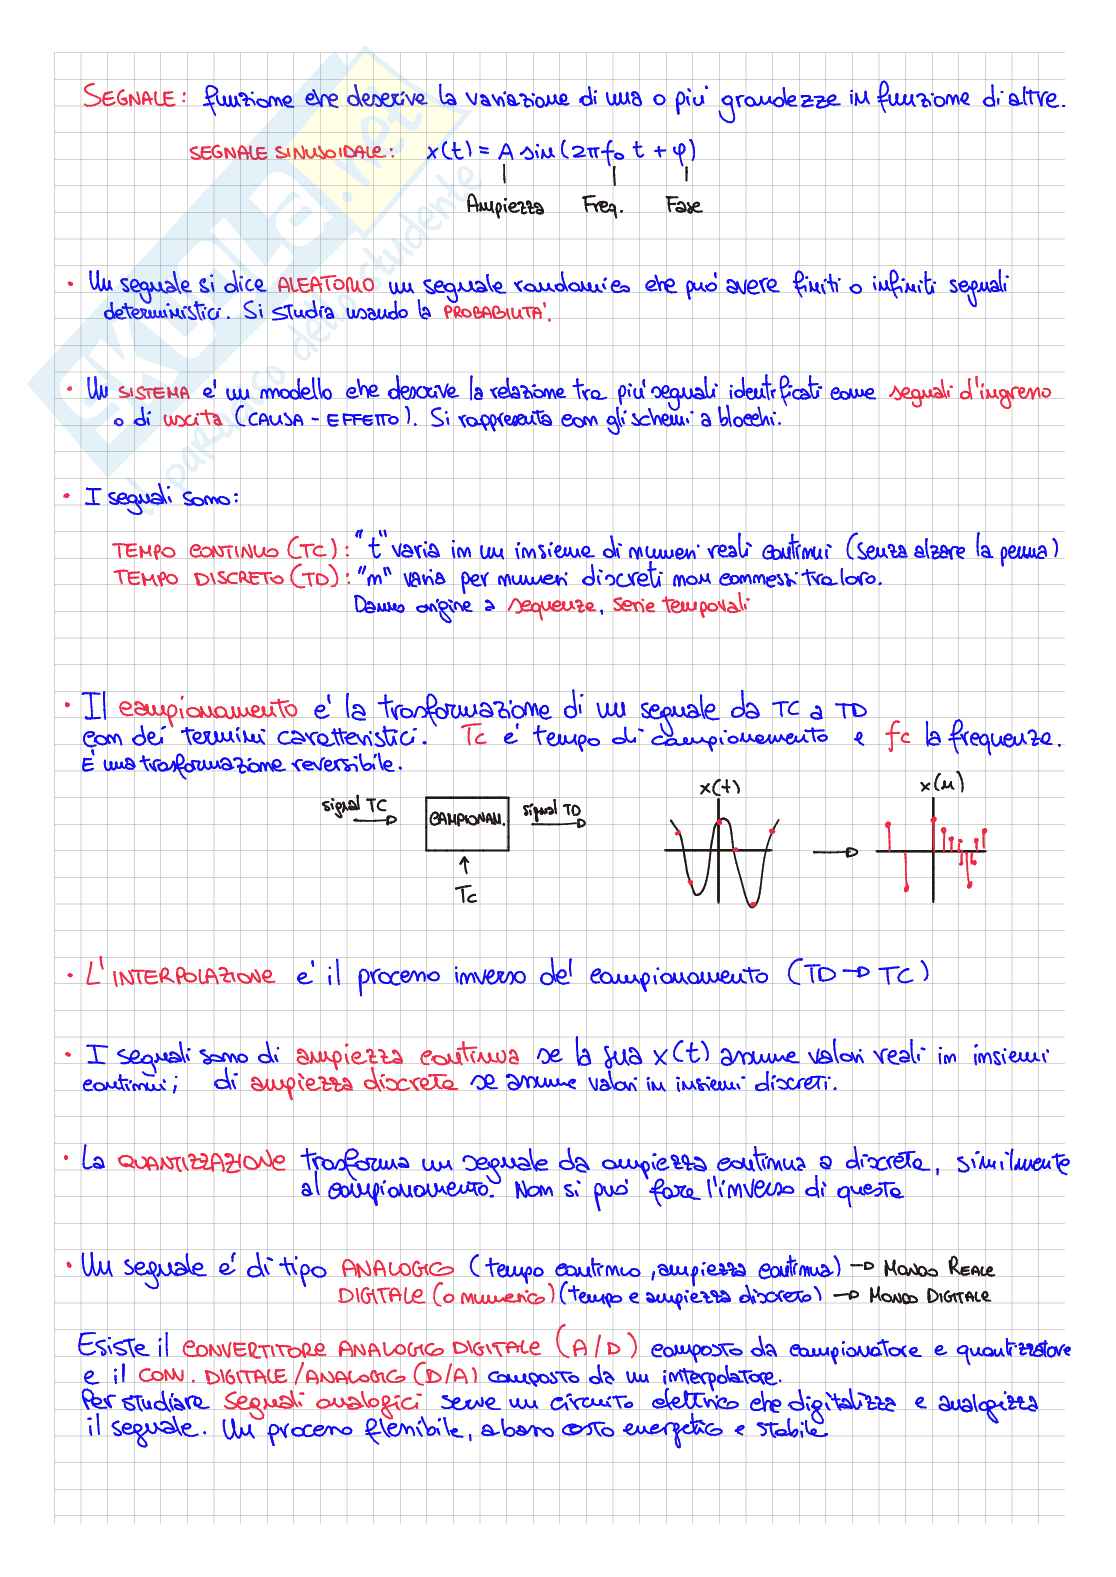 SEGNALE: funzione che descrive la variazione di una o più grandezze in funzione di altre.
SEGNALE SINUSOIDALE: x(t) = A sin(2πf₀ t + φ)
Ampiezza Freq. Fase
• Un segnale si dice ALEATORIO un segnale randomico che può avere finiti o infiniti segnali
deterministici. Si studia usando la PROBABILITA'.
• Un SISTEMA e' un modello che descrive la relazione tra più segnali identificati come segnali d'ingresso
o di uscita (CAUSA - EFFETTO). Si rappresenta con gli schemi a blocchi.
• I segnali sono:
TEMPO CONTINUO (TC): "t" varia in un insieme di numeri reali continui (senza alzare la penna)
TEMPO DISCRETO (TD): "n" varia per numeri discreti non connessi tra loro.
Danno origine a sequenze, serie temporali
• Il campionamento e' la trasformazione di un segnale da TC a TD
con dei termini caratteristici. Tc e' tempo di campionamento e fc la frequenza.
E' una trasformazione reversibile.
signal TC CAMPIONAM. signal TD x(t) x(n)
Tc
• L'INTERPOLAZIONE e' il processo inverso del campionamento (TD → TC)
• I segnali sono di ampiezza continua se la sua x(t) assume valori reali in insiemi
continui; di ampiezza discreta se assume valori in insiemi discreti.
• La QUANTIZZAZIONE trasforma un segnale da ampiezza continua a discreta, similmente
al campionamento. Non si può fare l'inverso di questa
• Un segnale e' di tipo ANALOGICO (tempo continuo, ampiezza continua) → MONDO REALE
DIGITALE (o numerico) (tempo e ampiezza discreto) → MONDO DIGITALE
Esiste il CONVERTITORE ANALOGICO DIGITALE (A/D) composto da campionatore e quantizzatore
e il CONV. DIGITALE/ANALOGICO (D/A) composto da un interpolatore.
Per studiare segnali analogici serve un circuito elettrico che digitalizza e analogizza
il segnale. Un processo flessibile, a basso costo energetico e stabile.